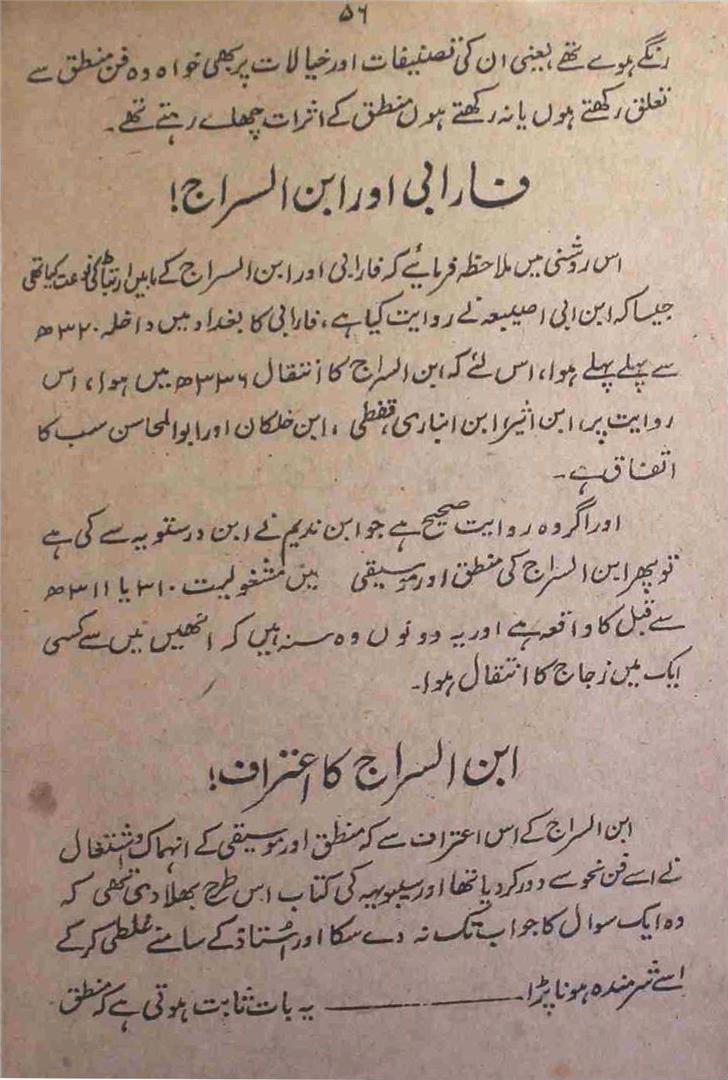 ۵۶
رنگے ہوے تھے یعنی ان کی تصنیفات اور خیالات پر بھی خواہ وہ فن منطق سے
تعلق رکھتے ہوں یا نہ رکھتے ہوں منطق کے اثرات چھاے رہتے تھے۔
فارابی اور ابن السراج!
اس روشنی میں ملاحظہ فرمائیے کہ فارابی اور ابن السراج کے مابین ارتباط کی نوعیت کیا تھی
جیسا کہ ابن ابی اصیبعہ نے روایت کیا ہے، فارابی کا بغداد میں داخلہ ۳۲۰ھ
سے پہلے پہلے ہوا، اس لئے کہ ابن السراج کا انتقال ۳۳۶ھ میں ہوا، اس
روایت پر، ابن اثیر، ابن انباری، قفطی ، ابن خلکان اور ابوالمحاسن سب کا
اتفاق ہے۔
اور اگر وہ روایت صحیح ہے جو ابن ندیم نے ابن درستویہ سے کی ہے
تو پھر ابن السراج کی منطق اور موسیقی میں مشغولیت ۳۱۰ یا ۳۱۱ھ
سے قبل کا واقعہ ہے اور یہ دونوں وہ سنہ ہیں کہ انھیں میں سے کسی
ایک میں زجاج کا انتقال ہوا۔
ابن السراج کا اعتراف!
ابن السراج کے اس اعتراف سے کہ منطق اور موسیقی کے انہماک و اشتغال
نے اسے فن نحو سے دور کر دیا تھا اور سیبویہہ کی کتاب اس طرح بھلا دی تھی کہ
وہ ایک سوال کا جواب تک نہ دے سکا اور استاذ کے سامنے غلطی کر کے
اسے شرمندہ ہونا پڑا ——— یہ بات ثابت ہوتی ہے کہ منطق